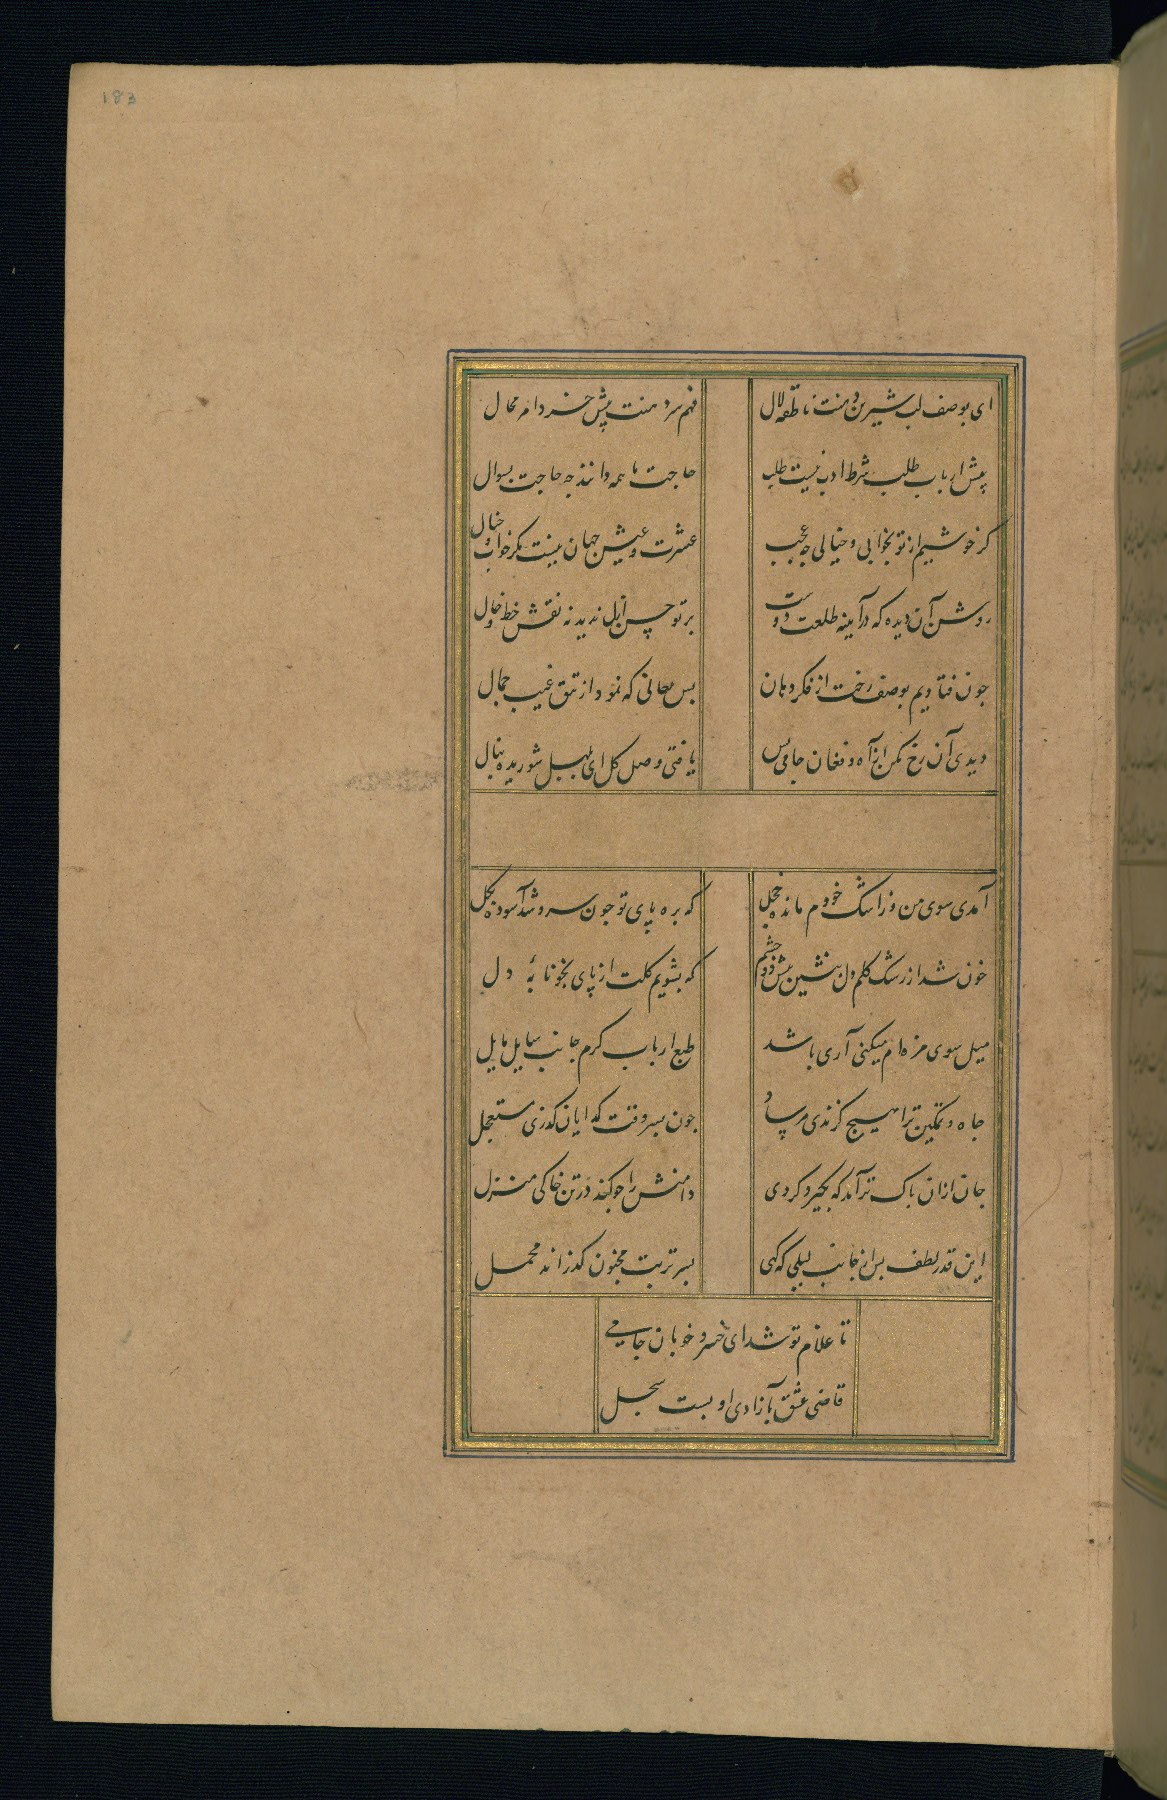 183
ای بوصف لب شیرین دهنت ناطقه لال
فهم سر دهنت پیش خرد امر محال
پیش ارباب طلب شرط ادب نیست طلب
حاجت ما همه دانند چه حاجت بسوال
کر خوشیم از تو بخوابی و خیالی چه عجب
عشرت و عیش جهان نیست مکر خواب و خیال
روشن آن دیده که در آیینه طلعت دوست
برتو حسن ازل دید نه نقش خط و خال
جون فتادیم بوصف رخت از فکر دهان
بس معانی که نمود از تتق غیب جمال
دیدی آن رخ مکن از آه و فغان جامی بس
یافتی وصل کل ای بلبل شوریده بنال
آمدی سوی من و ز اشک خودم مانده خجل
که بره پای تو جون سرو شد آسوده بکل
خون شد از رشک کلم دل بنشین پیش دو چشم
که بشویم کلت از پای بخونابهٔ دل
میل سوی مژه ام میکنی آری باشد
طبع ارباب کرم جانب سایل مایل
جاه و تمکین ترا هیچ کزندی مرساد
جون بسر وقت کدایان کذری مستعجل
جان ازان باک تر آمد که بخیر و کردی
دامنش را جو کند در تن خاکی منزل
این قدر لطف بس از جانب لیلی که کهی
بسر تربت مجنون کذراند محمل
تا غلام تو شد ای خسرو خوبان جامی
قاضی عشق بآزادی او بست سجل